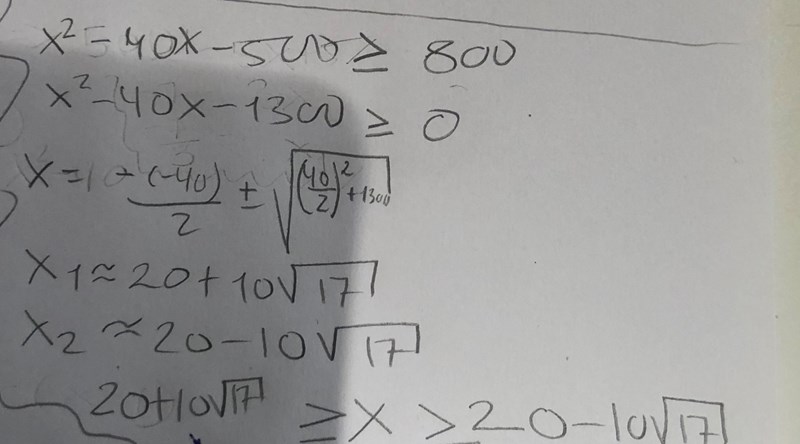 x² = 40x - 500 ≥ 800
x² - 40x - 1300 ≥ 0
x = -(-40)/2 ± √((40/2)² + 1300)
x1 ≈ 20 + 10√17
x2 ≈ 20 - 10√17
20+10√17 ≥ x > 20 - 10√17